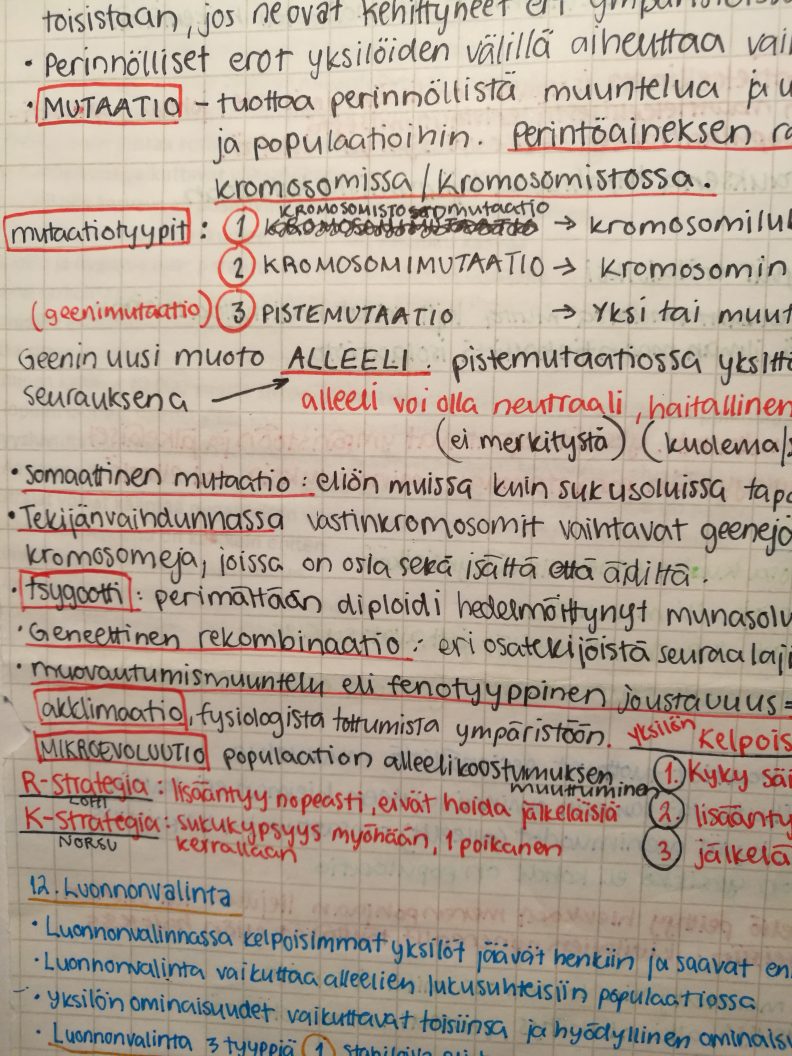 toisistaan, jos ne ovat kehittyneet eri
• Perinnölliset erot yksilöiden välillä aiheuttaa
• MUTAATIO – tuottaa perinnöllistä muuntelua ja
ja populaatioihin. Perintöaineksen
kromosomissa/kromosomistossa.
mutaatiotyypit : 1 KROMOSOMISTOmutaatio → kromosomilu
2 KROMOSOMIMUTAATIO → kromosomin
(geenimutaatio) 3 PISTEMUTAATIO → Yksi tai muut
Geenin uusi muoto ALLEELI. pistemutaatiossa yksitt
seurauksena → alleeli voi olla neutraali, haitallinen
(ei merkitystä) (kuolema/
• Somaattinen mutaatio : eliön muissa kuin sukusoluissa tapa
• Tekijänvaihdunnassa vastinkromosomit vaihtavat geenejä
kromosomeja, joissa on osia sekä isältä että äidiltä.
• tsygootti : perimältään diploidi hedelmöittynyt munasolu
• Geneettinen rekombinaatio : eri osatekijöistä seuraa laji
• muovautumismuuntelu eli fenotyyppinen joustavuus =
akklimaatio, fysiologista tottumista ympäristöön. yksilön kelpois
MIKROEVOLUUTIO populaation alleelikoostumuksen muuttuminen 1. Kyky säi
R-strategia : lisääntyy nopeasti, eivät hoida jälkeläisiä 2. lisäänty
LOHI
K-strategia : sukukypsyys myöhään, 1 poikanen 3 jälkelä
NORSU kerrallaan
12. Luonnonvalinta
• Luonnonvalinnassa kelpoisimmat yksilöt jäävät henkiin ja saavat en
• Luonnonvalinta vaikuttaa alleelien lukusuhteisiin populaatiossa
• yksilön ominaisuudet vaikuttavat toisiinsa ja hyödyllinen ominaisu
• Luonnonvalinta 3 tyyppiä 1